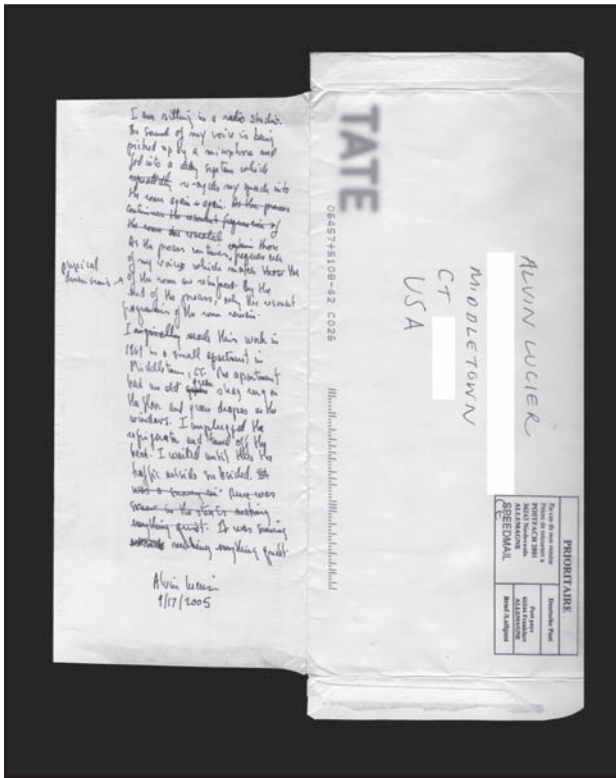 I am sitting in a radio studio.
The sound of my voice is being
picked up by a microphone and
fed into a delay system which
repeatedly re-cycles my speech into
the room again + again. As the process
continues the resonant frequencies of
the room are
As the process continues, frequencies
of my voice which match those the
physical
dimensions
of the room are reinforced. By the
end of the process, only the resonant
frequencies of the room remain.
I originally made this work in
1969 in a small apartment in
Middletown, CT. The apartment
had an old green shag rug on
the floor and green drapes on the
windows. I unplugged the
refrigerator and turned off the
heat. I waited until the
traffic outside subsided. It
was a snowy There was
snow in the streets making
everything quiet. It was snowing
making everything quiet
Alvin Lucier
9/17/2005
TATE
06457+5108-42 C026
ALVIN LUCIER
MIDDLETOWN
CT
USA
PRIORITAIRE
En cas de non remise
Prière de retourner à
POSTFACH 2001
36243 Niederaula
ALLEMAGNE
SPEEDMAIL
CE
Deutsche Post
Port payé
60544 Frankfurt
ALLEMAGNE
Brief/Luftpost